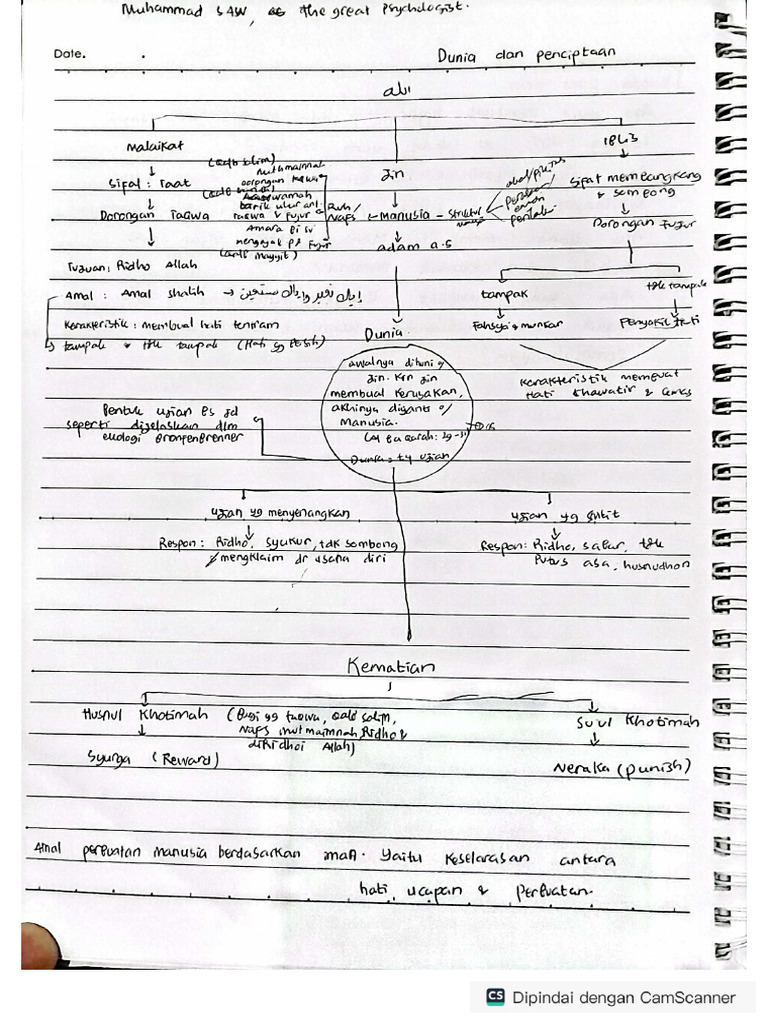 Muhammad SAW, as the great Psychologist.
Date. . Dunia dan penciptaan
Malaikat
Jin
Iblis
Sifat : Taat
(Qalb Salim)
Muthmainnah
dorongan takwa
Dorongan Taqwa
Lawwamah
tarik ulur ant.
taqwa & Fujur
Amara bi su
mengajak pd Fujur
(Qalb Mayyit)
Ruh/
Nafs
Manusia - Struktur
akal/pikiran
Perasaan
emosi
perilaku
Sifat membangkang
& sombong
Dorongan Fujur
adam a.s
Tujuan : Ridho Allah
Amal : Amal shalih → إياك نعبد وإياك نستعين
Karakteristik : membuat hati tentram
tampak & tdk tampak (Hati yg bersih)
tampak
tdk tampak
Fahsya & munkar
Penyakit hati
Karakteristik membuat
hati khawatir & cemas
Dunia.
awalnya dihuni o/
Jin. Krn Jin
membuat kerusakan,
akhirnya diganti o/
Manusia.
(Al Baqarah: 29-31)
Dunia = tp ujian
Bentuk ujian bs jd
seperti dijelaskan dlm
ekologi Bronfenbrenner
ujian yg menyenangkan
ujian yg sulit
Respon : Ridho, syukur, tdk sombong
mengklaim dr usaha diri
Respon : Ridho, sabar, tdk
Putus asa, husnudhon
Kematian
Husnul Khotimah (Bagi yg taqwa, Qalb salim,
Nafs mutmainnah, Ridho &
diRidhoi Allah)
Suul Khotimah
Syurga (Reward)
Neraka (punish)
Amal perbuatan manusia berdasarkan iman. Yaitu Keselarasan antara
hati, ucapan & Perbuatan.
CS Dipindai dengan CamScanner